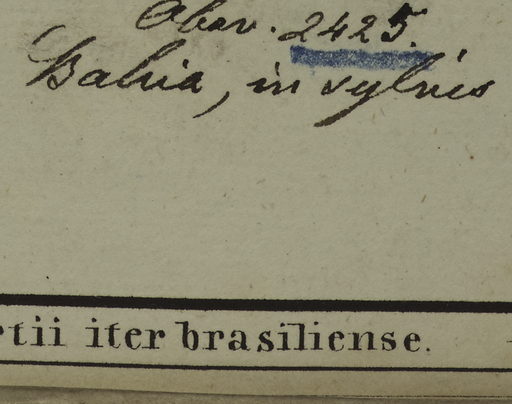 Obsv. 2425.
Bahia, in sylvis
rtii iter brasiliense.